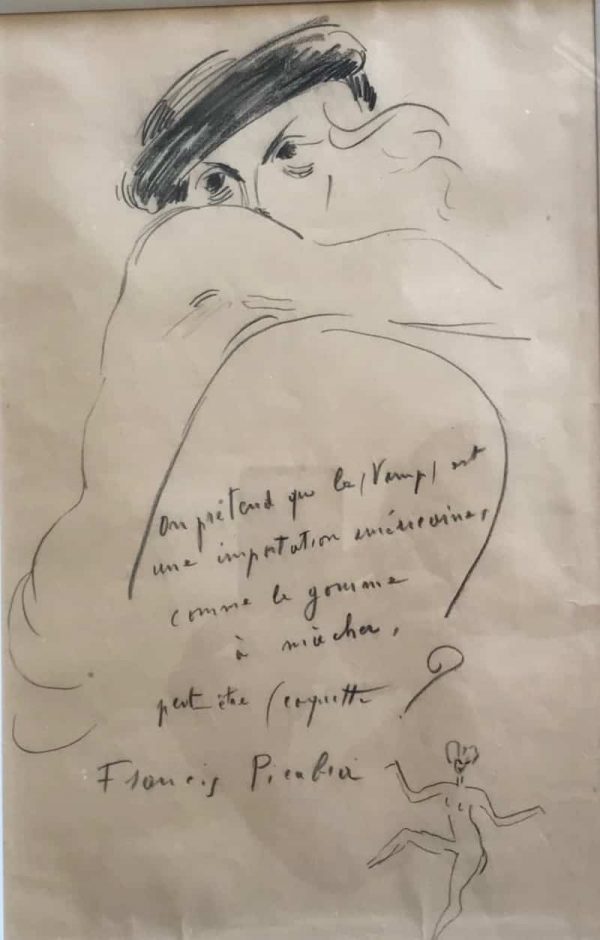 On prétend que la (Vamp) est
une importation américaine,
comme la gomme
à mâcher,
peut-être (coquette
?
Francis Picabia